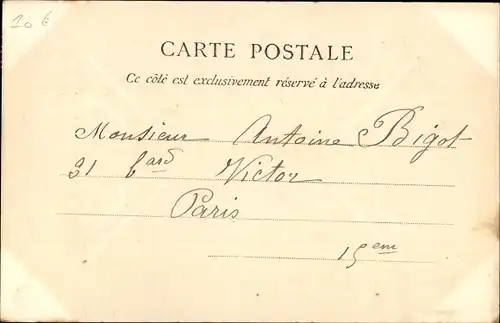 10 €
CARTE POSTALE
Ce côté est exclusivement réservé à l'adresse
Monsieur Antoine Bigot
31 b^ard Victor
Paris
15^em